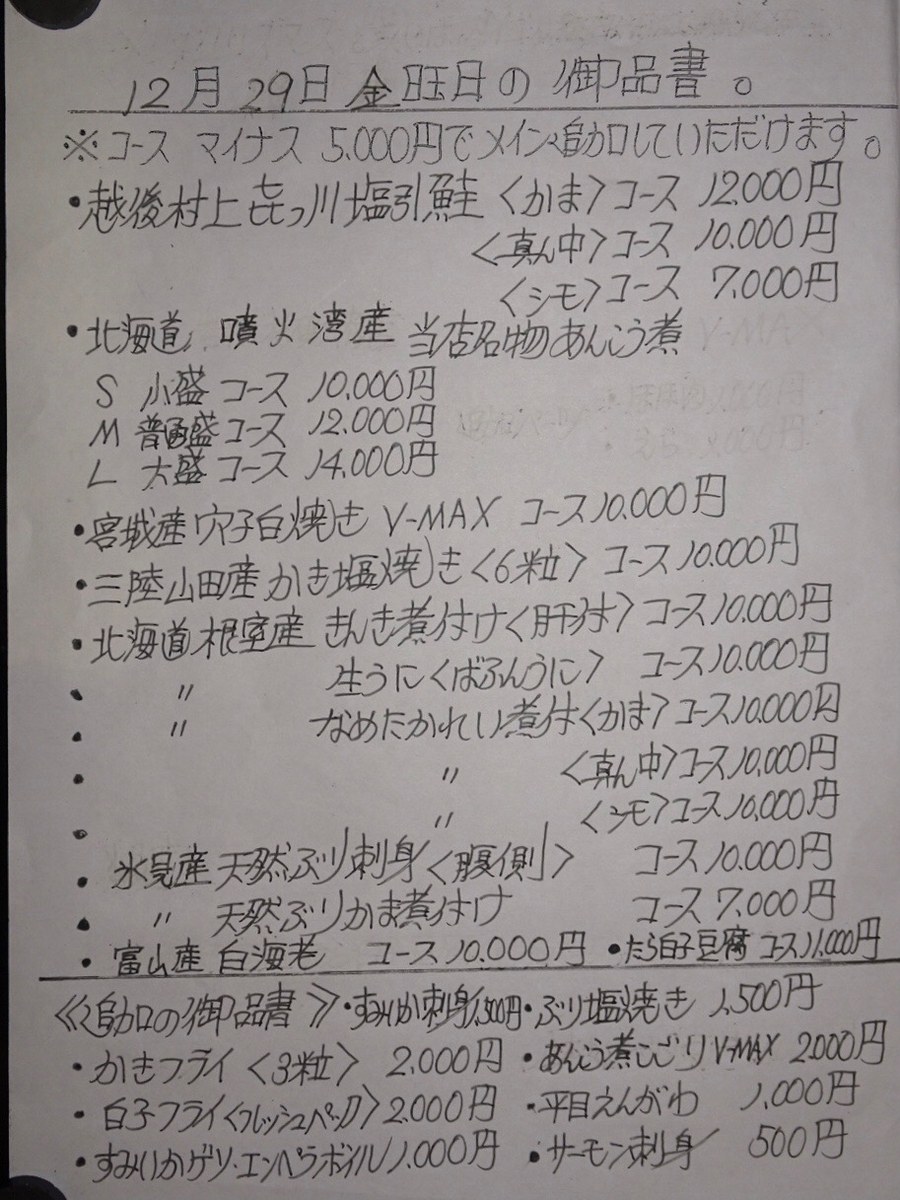 12月29日 金旺日の御品書。
※コース マイナス 5.000円でメイン追加していただけます。
・越後村上㐂っ川塩引鮭〈かま〉コース 12.000円
〈真ん中〉コース 10.000円
〈シモ〉コース 7.000円
・北海道 噴火湾産 当店名物あんこう煮
S 小盛コース 10.000円
M 普通盛コース 12.000円
L 大盛コース 14.000円
・宮城産穴子白焼き V-MAX コース10.000円
・三陸山田産かき塩焼き〈6粒〉コース10.000円
・北海道根室産 きんき煮付け〈肝付〉コース10.000円
・ 〃 生うに〈ばふんうに〉 コース10.000円
・ 〃 なめたかれい煮付〈かま〉コース10.000円
・ 〃 〈真ん中〉コース10.000円
・ 〃 〈シモ〉コース10.000円
・氷見産天然ぶり刺身〈腹側〉 コース10.000円
・ 〃 天然ぶりかま煮付け コース 7.000円
・富山産 白海老 コース10.000円 ・たら白子豆腐 コース11.000円
《追加の御品書》・すみいか刺身1.300円・ぶり塩焼き 1.500円
・かきフライ〈3粒〉 2.000円 ・あんこう煮こごりV-MAX 2.000円
・白子フライ〈フレッシュパック〉2.000円 ・平目えんがわ 1.000円
・すみいかゲソ・エンペラボイル1.000円 ・サーモン刺身 500円